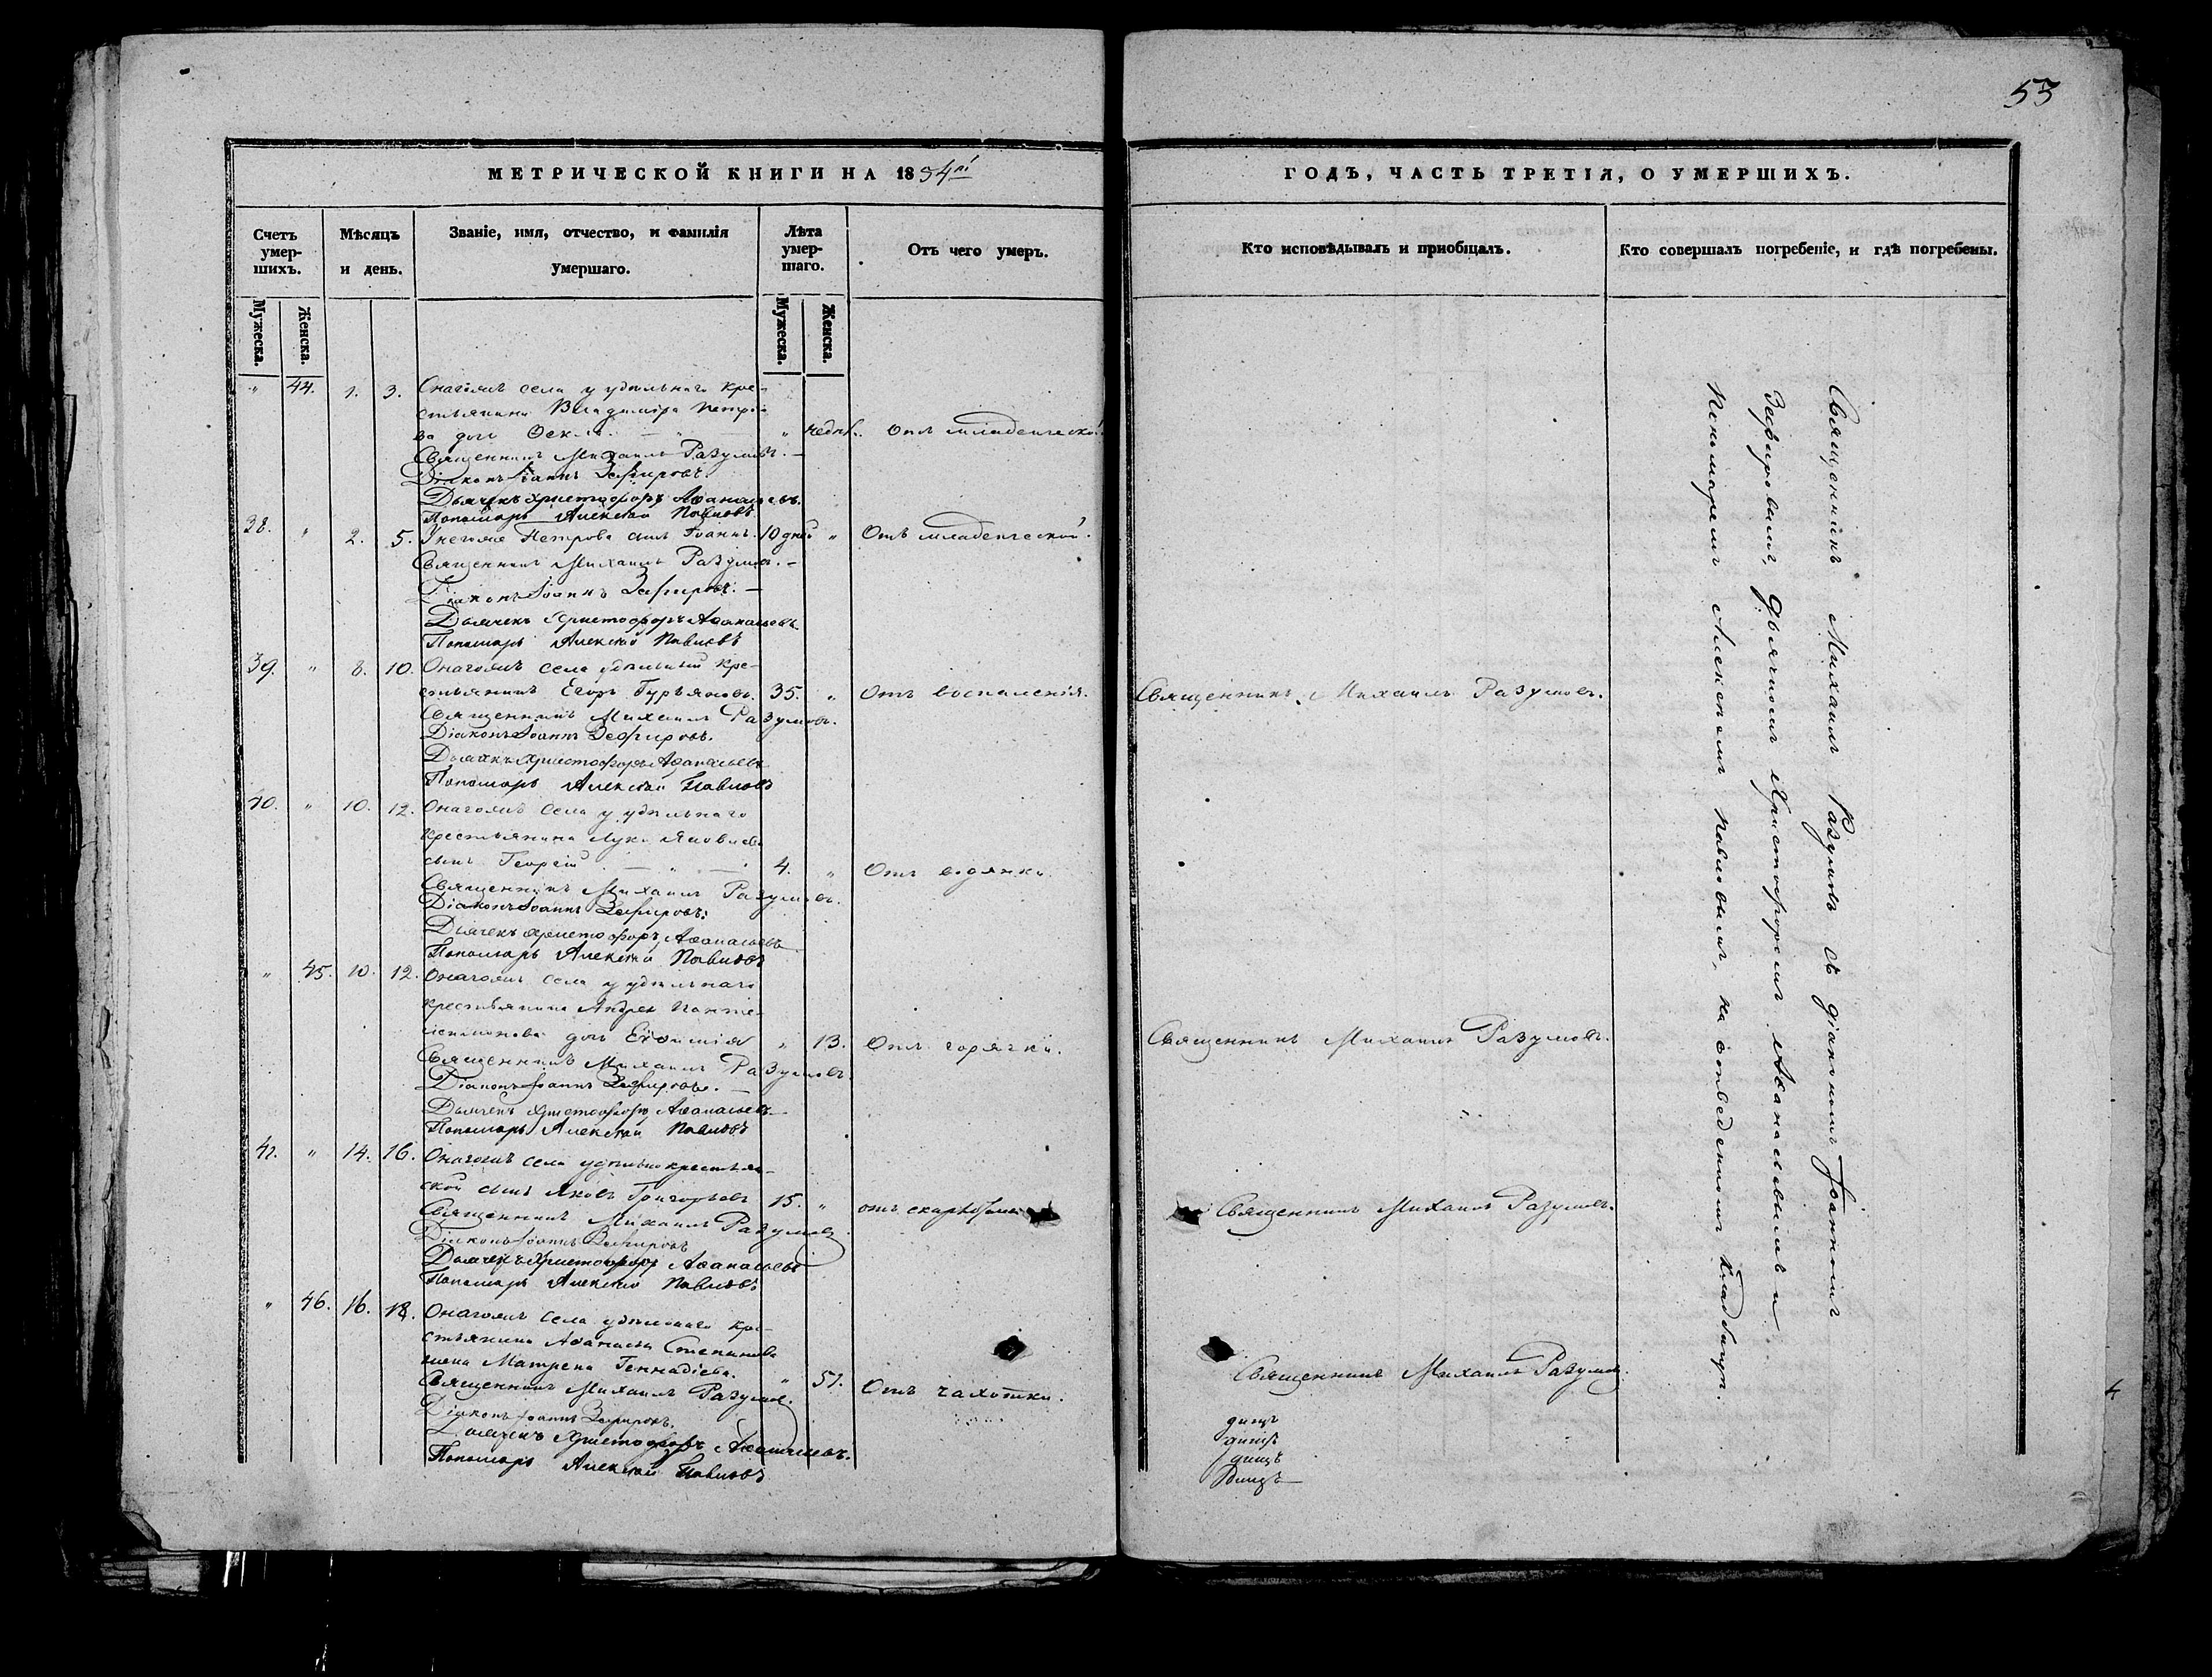 53
МЕТРИЧЕСКОЙ КНИГИ НА 1834й
ГОДЪ, ЧАСТЬ ТРЕТІЯ, О УМЕРШИХЪ.
Счетъ умер-шихъ.
Мѣсяцъ и день.
Званіе, имя, отчество, и фамилія умершаго.
Лѣта умер-шаго.
Отъ чего умеръ.
Кто исповѣдывалъ и пріобщалъ.
Кто совершалъ погребеніе, и гдѣ погребены.
Мужеска.
Женска.
Мужеска.
Женска.
" 44. 1. 3. Онагожъ села у удѣльнаго кре-
стьянина Владиміра Петро-
ва дочь " недѣл. Отъ младенческой
Священникъ Михаилъ Разумовъ.
Діаконъ Іоаннъ Зефировъ.
Дьячекъ Христофоръ Аѳанасьевъ.
Пономарь Алексѣй Павловъ
38. " 2. 5. У негоже Петрова сынъ Іоаннъ. 10 дней " Отъ младенческой.
Священникъ Михаилъ Разумовъ.
Діаконъ Іоаннъ Зефировъ.
Дьячекъ Христофоръ Аѳанасьевъ
Пономарь Алексѣй Павловъ
39. " 8. 10. Онагожъ села удѣльный кре-
стьянинъ Егоръ Гурьяновъ. 35. " Отъ воспаленія. Священникъ Михаилъ Разумовъ.
Священникъ Михаилъ Разумовъ.
Діаконъ Іоаннъ Зефировъ.
Дьячекъ Христофоръ Аѳанасьевъ
Пономарь Алексѣй Павловъ
40. " 10. 12. Онагожъ села у удѣльнаго
крестьянина Луки Яковлева
сынъ Георгій 4. " Отъ водянки.
Священникъ Михаилъ Разумовъ.
Діаконъ Іоаннъ Зефировъ.
Дьячекъ Христофоръ Аѳанасьевъ
Пономарь Алексѣй Павловъ
" 45. 10. 12. Онагожъ села у удѣльнаго
крестьянина Андрея Панте-
леимонова дочь Евѳимія " 13. Отъ горячки. Священникъ Михаилъ Разумовъ.
Священникъ Михаилъ Разумовъ.
Діаконъ Іоаннъ Зефировъ.
Дьячекъ Христофоръ Аѳанасьевъ
Пономарь Алексѣй Павловъ
41. " 14. 16. Онагожъ села удѣльно крестьян-
ской сынъ Яковъ Григорьевъ 15. " отъ Священникъ Михаилъ Разумовъ.
Священникъ Михаилъ Разумовъ
Діаконъ Іоаннъ Зефировъ
Дьячекъ Христофоръ Аѳанасьевъ
Пономарь Алексѣй Павловъ
" 46. 16. 18. Онагожъ села удѣльнаго кре-
стьянина Аѳанасья Степанова
жена Матрена Геннадіева. " 51. Отъ чахотки. Священникъ Михаилъ Разумовъ.
Священникъ Михаилъ Разумовъ.
Діаконъ Іоаннъ Зефировъ.
Дьячекъ Христофоръ Аѳанасьевъ.
Пономарь Алексѣй Павловъ
Священникъ Михаилъ Разумовъ съ діакономъ Іоанномъ
Зефировымъ, дьячкомъ Христофоромъ Аѳанасьевымъ и
Пономаремъ Алексѣемъ Павловымъ, на отведенномъ кладбищѣ.